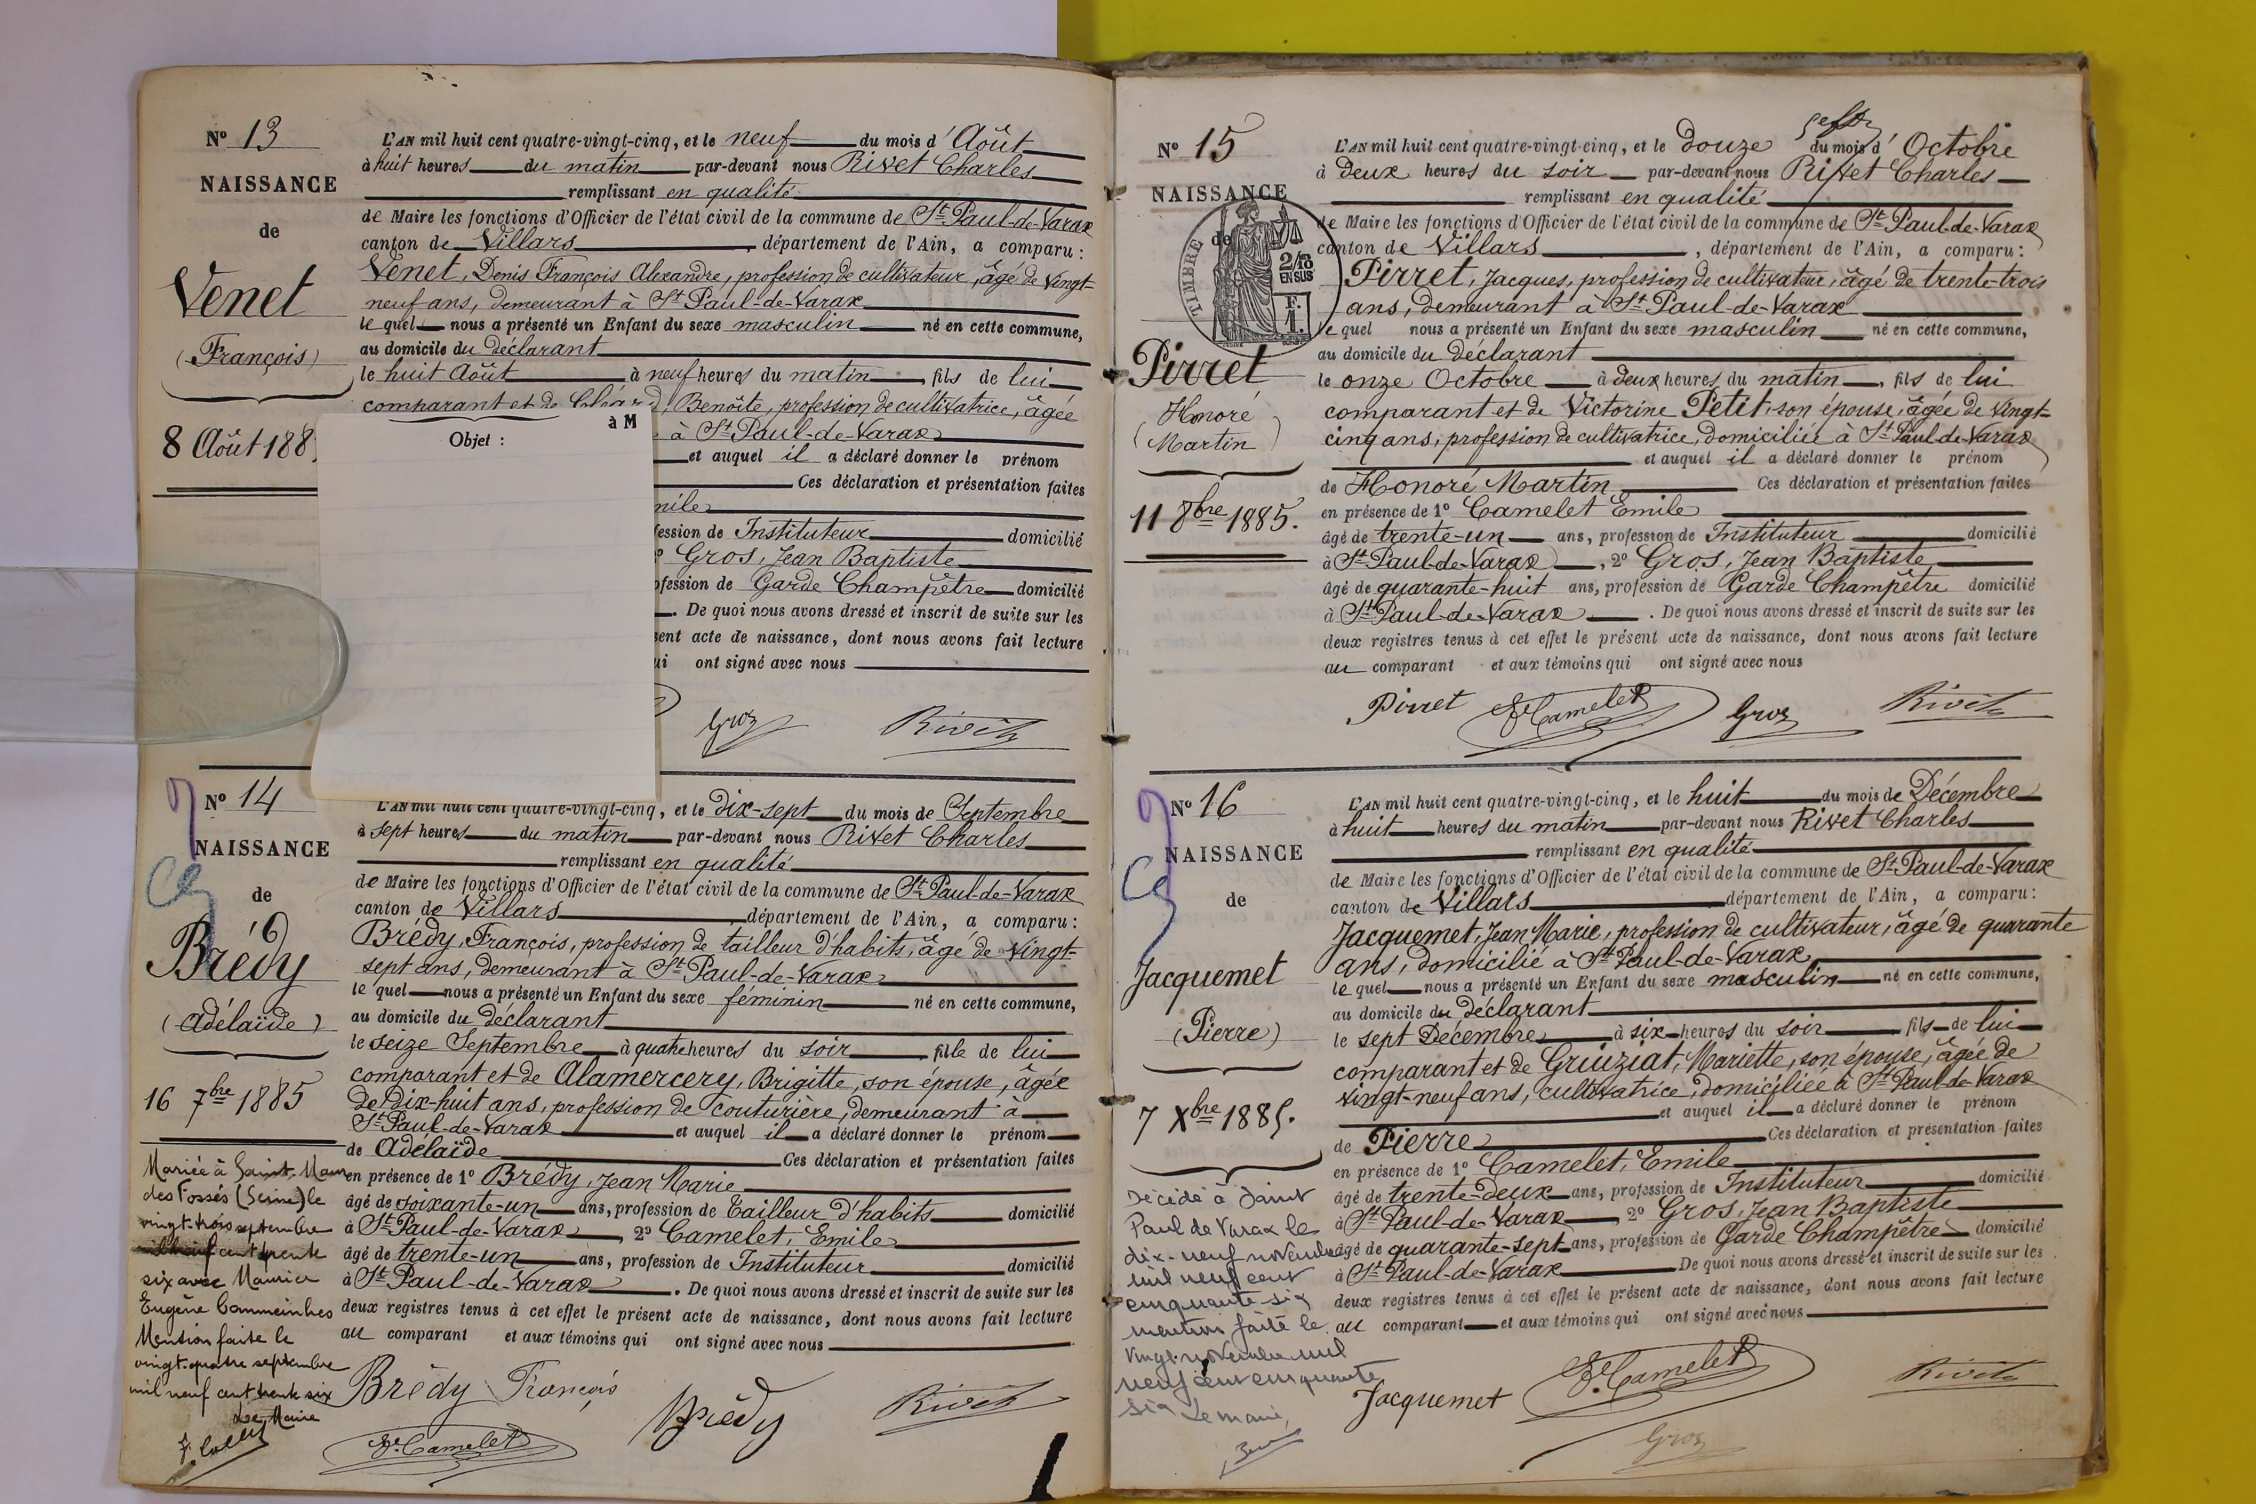 N° 13
NAISSANCE
de
Venet
(François)
8 Août 188
L'AN mil huit cent quatre-vingt-cinq, et le neuf du mois d'Août
à huit heures du matin par-devant nous Rivet Charles
remplissant en qualité
de Maire les fonctions d'Officier de l'état civil de la commune de St Paul-de-Varax
canton de Villars, département de l'Ain, a comparu :
Venet, Denis François Alexandre, profession de cultivateur, âgé de vingt-
neuf ans, demeurant à St Paul-de-Varax
lequel nous a présenté un Enfant du sexe masculin né en cette commune,
au domicile du déclarant
le huit Août à neuf heures du matin, fils de lui
comparant et de Benoîte, profession de cultivatrice, âgée
à St Paul-de-Varax
et auquel il a déclaré donner le prénom
Ces déclaration et présentation faites
fession de Instituteur domicilié
Gros, Jean Baptiste
ofession de Garde Champêtre domicilié
. De quoi nous avons dressé et inscrit de suite sur les
sent acte de naissance, dont nous avons fait lecture
ui ont signé avec nous
Gros Rivet
à M
Objet :
N° 14
NAISSANCE
de
Brédy
(Adélaïde)
16 7bre 1885
Mariée à Saint-Maur
des Fossés (Seine) le
vingt-trois septembre
mil neuf cent trente
six avec Maurice
Eugène
Mention faite le
vingt-quatre septembre
mil neuf cent trente six
Le Maire
L'AN mil huit cent quatre-vingt-cinq, et le dix-sept du mois de Septembre
à sept heures du matin par-devant nous Rivet Charles
remplissant en qualité
de Maire les fonctions d'Officier de l'état civil de la commune de St Paul-de-Varax
canton de Villars, département de l'Ain, a comparu :
Brédy, François, profession de tailleur d'habits, âgé de vingt-
sept ans, demeurant à St Paul-de-Varax
lequel nous a présenté un Enfant du sexe féminin né en cette commune,
au domicile du déclarant
le seize Septembre à quatre heures du soir, fille de lui
comparant et de Alamercery, Brigitte, son épouse, âgée
de dix-huit ans, profession de couturière, demeurant à
St Paul-de-Varax et auquel il a déclaré donner le prénom
de Adélaïde Ces déclaration et présentation faites
en présence de 1° Brédy, Jean Marie
âgé de soixante-un ans, profession de Tailleur d'habits domicilié
à St Paul-de-Varax, 2° Camelet, Emile
âgé de trente-un ans, profession de Instituteur domicilié
à St Paul-de-Varax. De quoi nous avons dressé et inscrit de suite sur les
deux registres tenus à cet effet le présent acte de naissance, dont nous avons fait lecture
au comparant et aux témoins qui ont signé avec nous
Brédy François Brédy Rivet
E. Camelet
N° 15
NAISSANCE
de
TIMBRE
2/10 EN SUS
F. 1.
Pirret
(Honoré
Martin)
11 8bre 1885.
L'AN mil huit cent quatre-vingt-cinq, et le douze du mois d'Octobre
à deux heures du soir par-devant nous Rivet Charles
remplissant en qualité
de Maire les fonctions d'Officier de l'état civil de la commune de St Paul-de-Varax
canton de Villars, département de l'Ain, a comparu :
Pirret, Jacques, profession de cultivateur, âgé de trente-trois
ans, demeurant à St Paul-de-Varax
lequel nous a présenté un Enfant du sexe masculin né en cette commune,
au domicile du déclarant
le onze Octobre à deux heures du matin, fils de lui
comparant et de Victorine Petit, son épouse, âgée de vingt-
cinq ans, profession de cultivatrice, domiciliée à St Paul-de-Varax
et auquel il a déclaré donner le prénom
de Honoré Martin Ces déclaration et présentation faites
en présence de 1° Camelet Emile
âgé de trente-un ans, profession de Instituteur domicilié
à St Paul-de-Varax, 2° Gros, Jean Baptiste
âgé de quarante-huit ans, profession de Garde Champêtre domicilié
à St Paul-de-Varax. De quoi nous avons dressé et inscrit de suite sur les
deux registres tenus à cet effet le présent acte de naissance, dont nous avons fait lecture
au comparant et aux témoins qui ont signé avec nous
Pirret E. Camelet Gros Rivet
N° 16
NAISSANCE
de
Jacquemet
(Pierre)
7 Xbre 1885.
Décédé à Saint
Paul de Varax le
dix-neuf novembre
mil neuf cent
cinquante-six
mention faite le
vingt novembre mil
neuf cent cinquante
six Le maire,
L'AN mil huit cent quatre-vingt-cinq, et le huit du mois de Décembre
à huit heures du matin par-devant nous Rivet Charles
remplissant en qualité
de Maire les fonctions d'Officier de l'état civil de la commune de St Paul-de-Varax
canton de Villars département de l'Ain, a comparu :
Jacquemet, Jean Marie, profession de cultivateur, âgé de quarante
ans, domicilié à St Paul-de-Varax
lequel nous a présenté un Enfant du sexe masculin né en cette commune,
au domicile du déclarant
le sept Décembre à six heures du soir fils de lui
comparant et de Gruiziat, Mariette, son épouse, âgée de
vingt-neuf ans, cultivatrice, domiciliée à St Paul-de-Varax
et auquel il a déclaré donner le prénom
de Pierre Ces déclaration et présentation faites
en présence de 1° Camelet, Emile
âgé de trente-deux ans, profession de Instituteur domicilié
à St Paul-de-Varax, 2° Gros, Jean Baptiste
âgé de quarante-sept ans, profession de Garde Champêtre domicilié
à St Paul-de-Varax De quoi nous avons dressé et inscrit de suite sur les
deux registres tenus à cet effet le présent acte de naissance, dont nous avons fait lecture
au comparant et aux témoins qui ont signé avec nous
Jacquemet E. Camelet Rivet
Gros